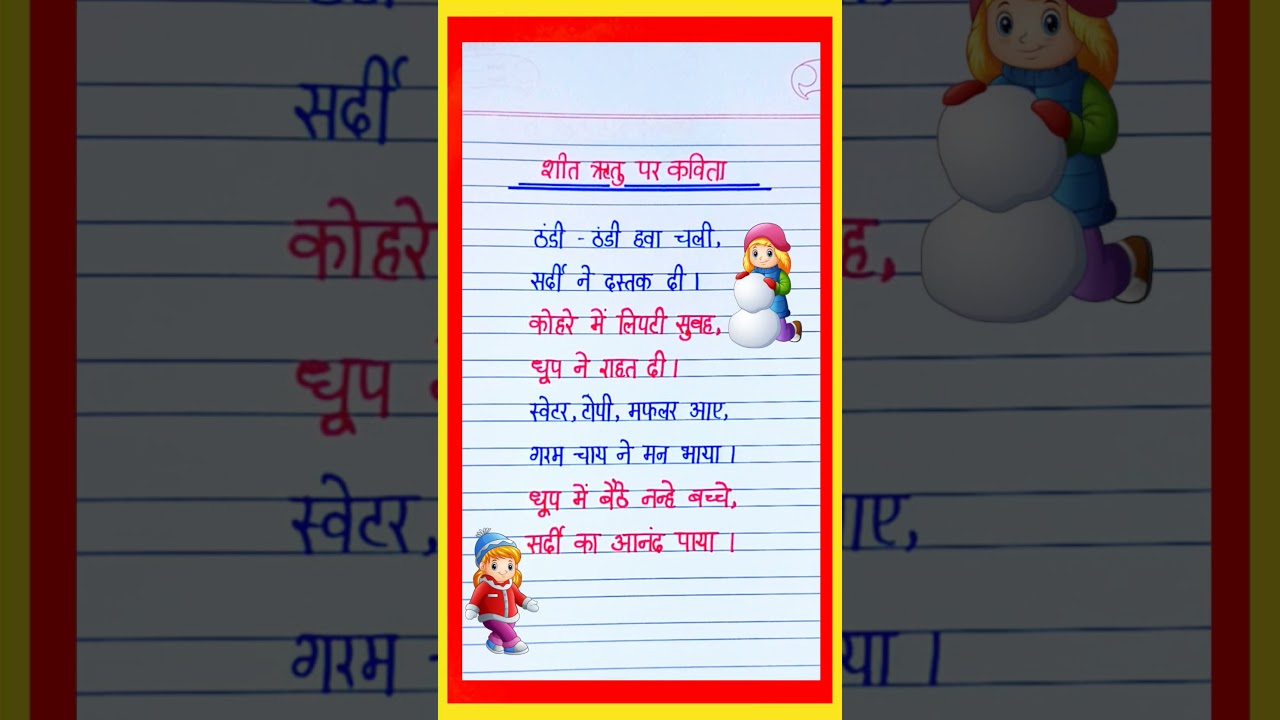 शीत ऋतु पर कविता
ठंडी - ठंडी हवा चली,
सर्दी ने दस्तक दी।
कोहरे में लिपटी सुबह,
धूप ने राहत दी।
स्वेटर, टोपी, मफलर आए,
गरम चाय ने मन भाया।
धूप में बैठे नन्हे बच्चे,
सर्दी का आनंद पाया।